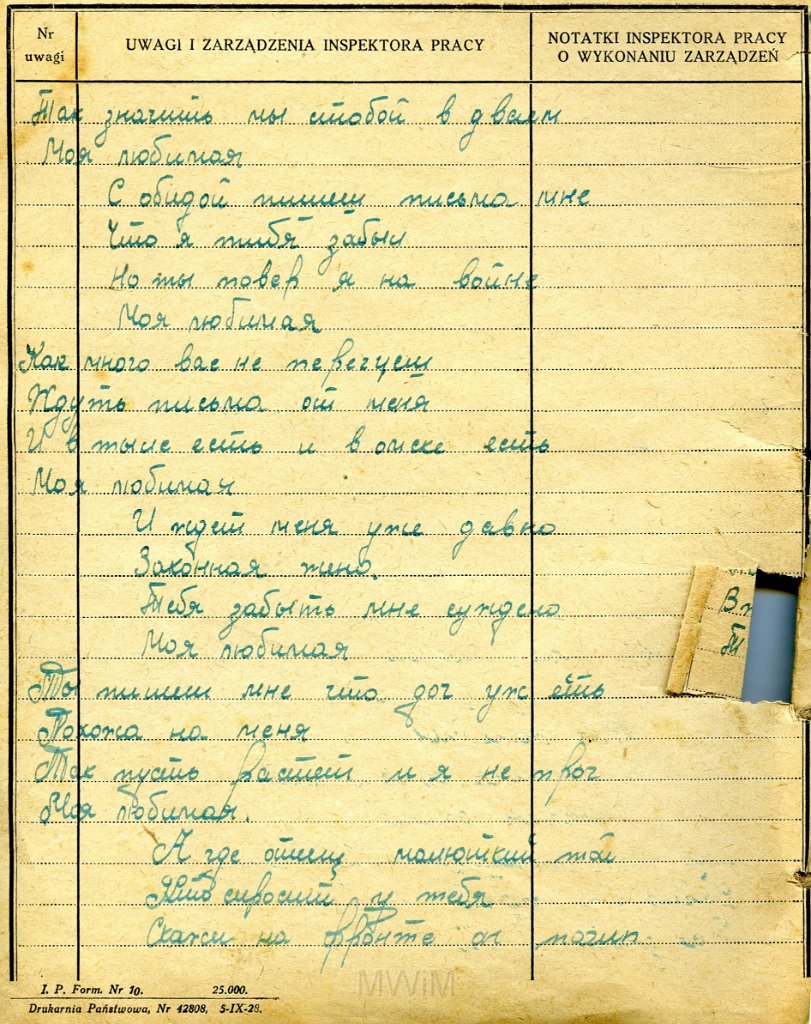 Nr uwagi
UWAGI I ZARZĄDZENIA INSPEKTORA PRACY
NOTATKI INSPEKTORA PRACY
O WYKONANIU ZARZĄDZEŃ
Так значить мы стобой в дваем
Моя любимая
С обидой пишеш письма мне
Что я тибя забыл
Но ты повер я на войне
Моя любимая
Как много вас не перечуеш
Ждуть письма от меня
И в тыле есть и в омске есть
Моя любимая
И ждет меня уже давно
Законная жена.
Тебя забыть мне суждено
Моя любимая
Ты пишеш мне что доч уж есть
Похожа на меня
Так пусть растет и я не проч
Моя любимая.
А где отец малюткий той
Кто спросит у тебя
Скажи на фронте он погип
В
Т
I. P. Form. Nr 10. 25.000.
Drukarnia Państwowa, Nr 42808, 5-IX-28.
MWiM